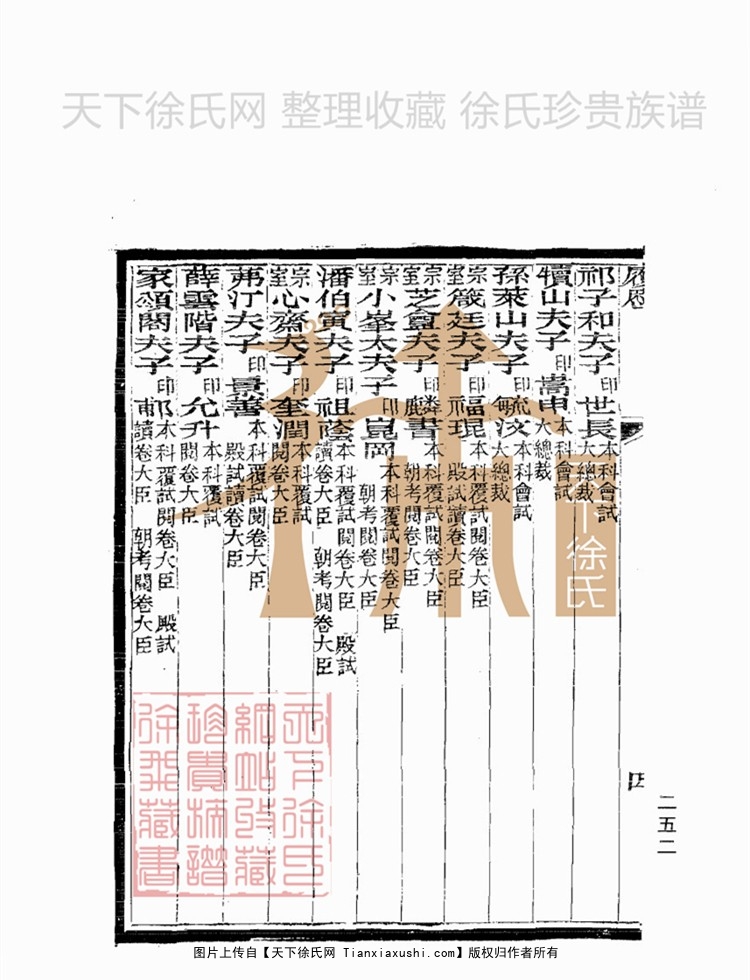 天下徐氏网 整理收藏 徐氏珍贵族谱
履歷
祁子和夫子 印 世長 本科會試大總裁
犢山夫子 印 嵩申 本科會試大總裁
孫萊山夫子 印 毓汶 本科會試大總裁
宗室 箴廷夫子 印 福琨 本科覆試閱卷大臣 殿試讀卷大臣
宗室 芝盦夫子 印 麟書 本科覆試閱卷大臣 朝考閱卷大臣
宗室 小峯太夫子 印 崑岡 本科覆試閱卷大臣 朝考閱卷大臣
潘伯寅夫子 印 祖蔭 本科覆試閱卷大臣 殿試讀卷大臣 朝考閱卷大臣
宗室 心齋夫子 印 奎潤 本科覆試閱卷大臣
茀汀夫子 印 景善 本科覆試閱卷大臣 殿試讀卷大臣
薛雲階夫子 印 允升 本科覆試閱卷大臣
家頌閣夫子 印 郙 本科覆試閱卷大臣 殿試讀卷大臣 朝考閱卷大臣
四
二五二
天下徐氏
天下徐氏
網站收藏
珍貴族譜
徐舜藏書
图片上传自【天下徐氏网 Tianxiaxushi.com】版权归作者所有